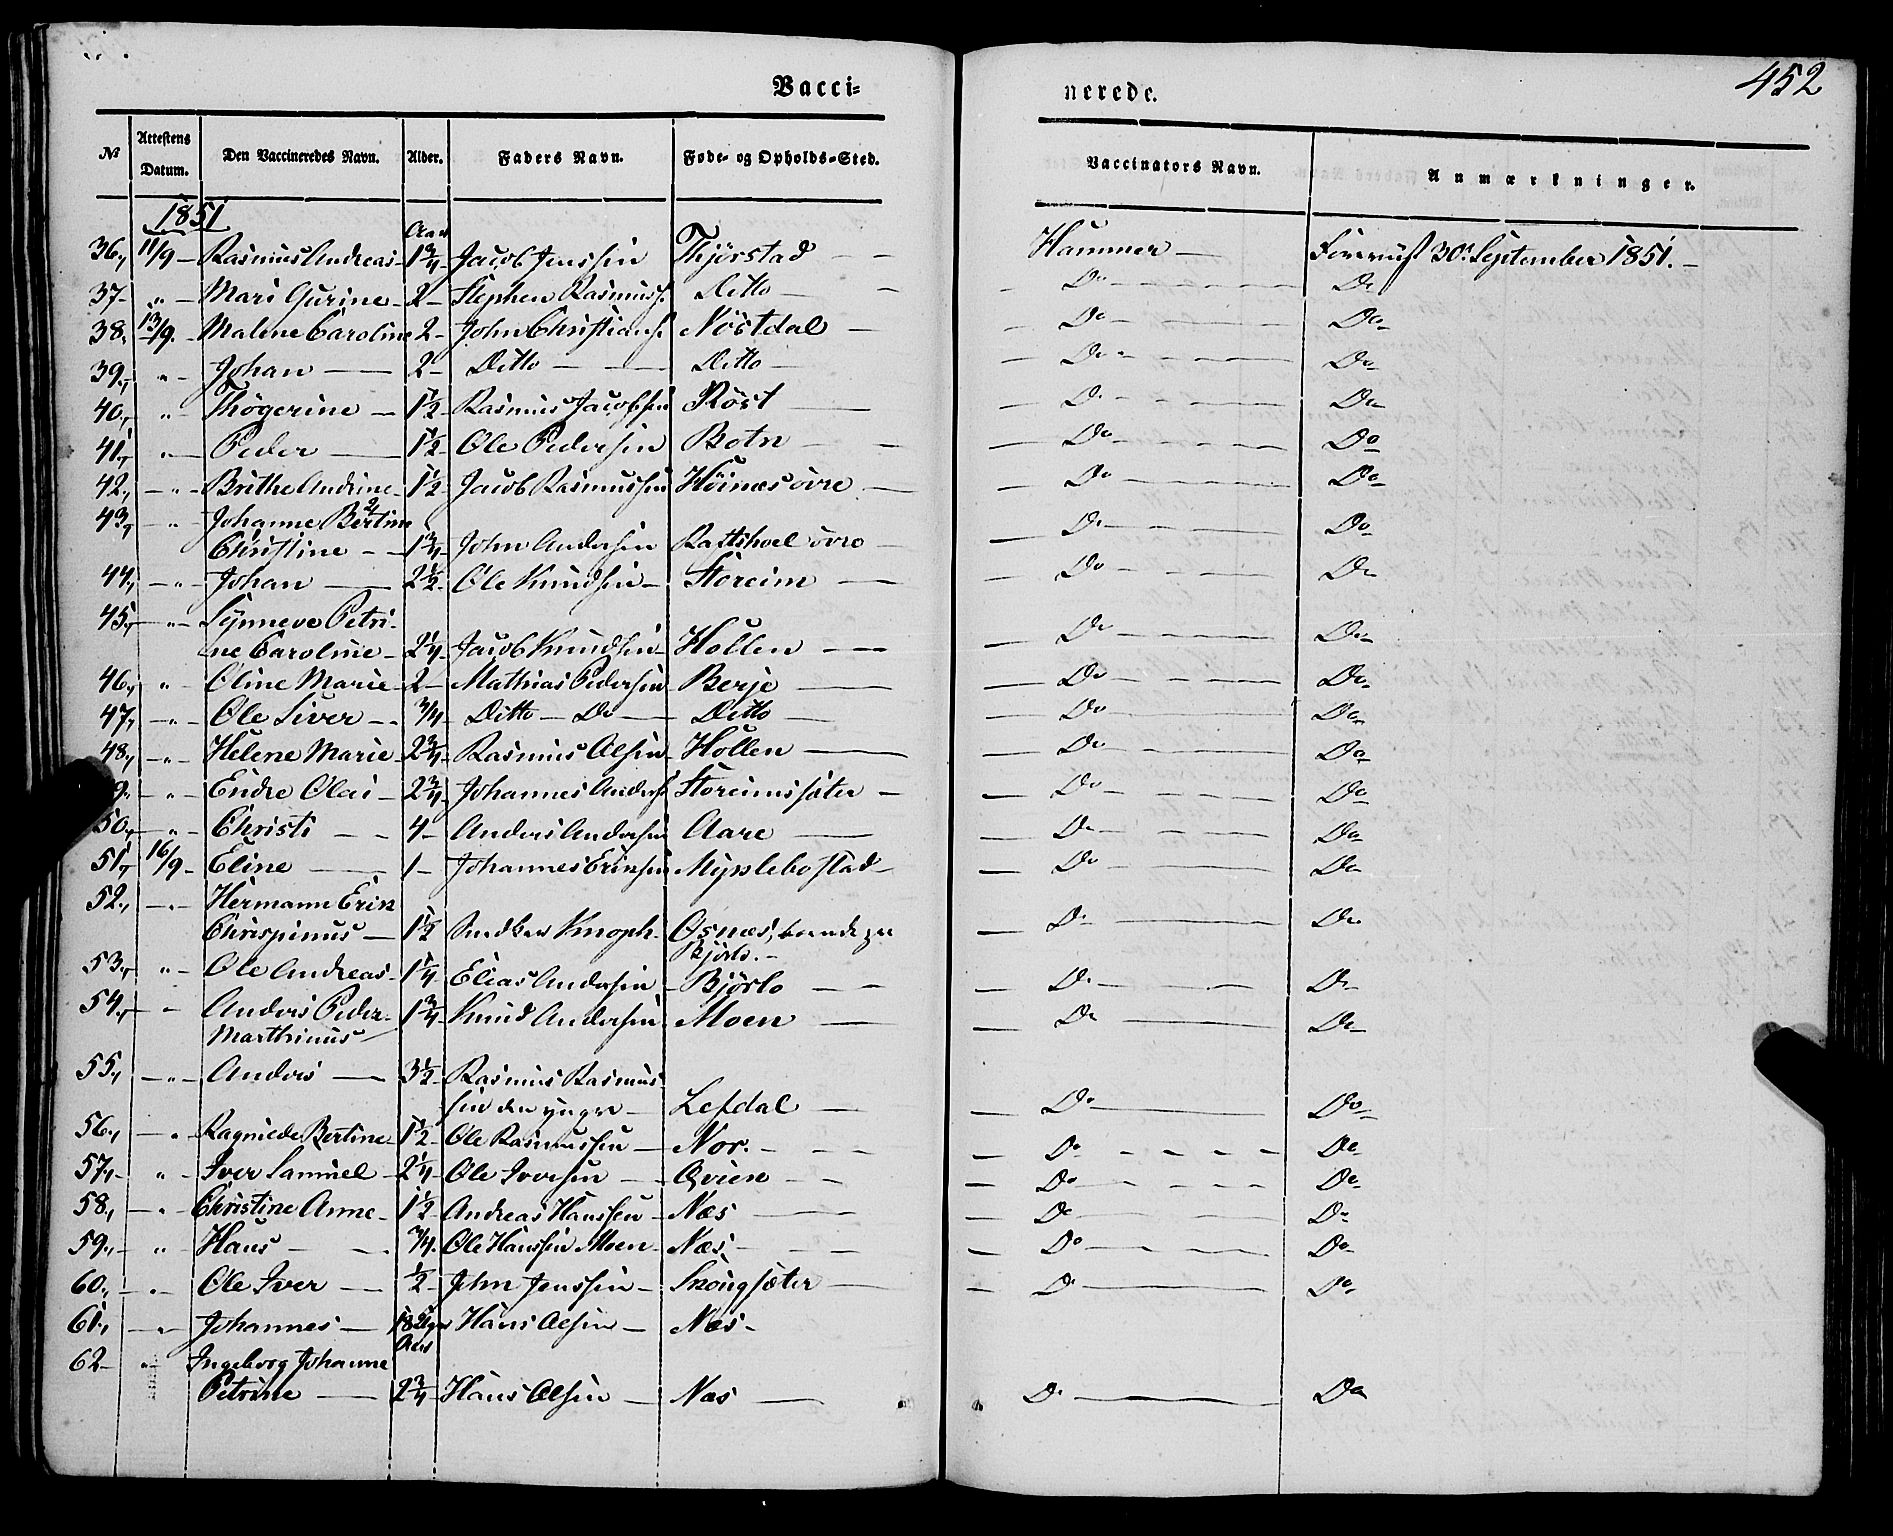 Vacci-
nerede.
452
№ Attestens Datum. Den Vaccineredes Navn. Alder. Faders Navn. Føde- og Opholds-Sted. Vaccinators Navn. Anmærkninger.
1851
Aar
36., 11/9 - Rasmus Andreas - 1 3/4 - Jacob Jenssen Hjørstad - - Hammer - Foreviist 30 September 1851. -
37 - „ - Mari Gurine - 2 - Stephen Rasmuss. Ditto - Do - Do
38., 13/9 - Malene Caroline 2 - John Christians. Nöstdal - Do - Do -
39., „ - Johan - 2 - Ditto - Ditto - Do - Do -
40., „ - Thögerine - 1 1/2 - Rasmus Jacobsen Röst - Do - Do
41., „ - Peder - 1 1/2 - Ole Pedersen Botn - Do - Do
42., - „ - Brithe Andrine - 1 1/2 - Jacob Rasmussen Höinæs övre - Do - Do -
43., - „ Johanne Bertine
Christine - - 1 3/4 - John Andersen Rattshoel övre - Do - Do -
44., - „ - Johan - 2 1/2 - Ole Knudsen - Storeim - Do - Do
45., - „ - Synneve Petri-
ne Caroline - 2 1/4 - Jacob Knudsen - Hollen - Do - Do -
46., „ - Oline Marie - 2 - Mathias Pedersen - Berje - Do - Do -
47., - „ - Ole Siver - 3/4 - Ditto - Do - Ditto - Do - Do -
48., - „ - Helene Marie - 2 3/4 - Rasmus Olsen - Hollen - Do - Do -
9., - „ - Endre Olai - 2 3/4 - Johannes Anders. Storeimssæter - Do - Do -
50., - „ - Christi - - 4 - Anders Andersen Aare - Do - Do -
51., 16/9 - Eline - 1 - Johannes Ericksen Myklebostad - Do - Do -
52., - „ - Hermann Erik
Chrispinus - 1 1/2 Snedker Knoph - Osnæs, boende paa
Bjørlo. - Do - Do -
53., „ - Ole Andreas - 1 1/4 - Elias Andersen - Bjørlo - - Do - Do -
54., - „ Anders Peder - 1 3/4 - Knud Andersen - Moen - Do - Do -
Marthinus
55., - „ - Anders - 3 1/2 - Rasmus Rasmus-
sen den yngre - Lefdal - Do - Do -
56., - „ - Ragnilde Bertine 1 1/2 - Ole Rasmussen - Nor. - Do - Do -
57., - „ - Iver Samuel - 2 1/4 - Ole Iversen - Qvien - - Do - Do -
58., - „ - Christine Anne - 1 1/2 - Andreas Hanssen - Næs - Do - Do -
59., - „ - Hans - - 3/4 - Ole Hanssen Moen - Næs - Do - Do -
60., - „ - Ole Iver - 1/2 - John Jenssen - Skougsæter - Do - Do -
61., - „ - Johannes - 18 Uger Hans Olsen - Næs -
Aar
62 - „ - Ingeborg Johanne
Petrine - 2 3/4 - Hans Olsen - Næs - Do - Do